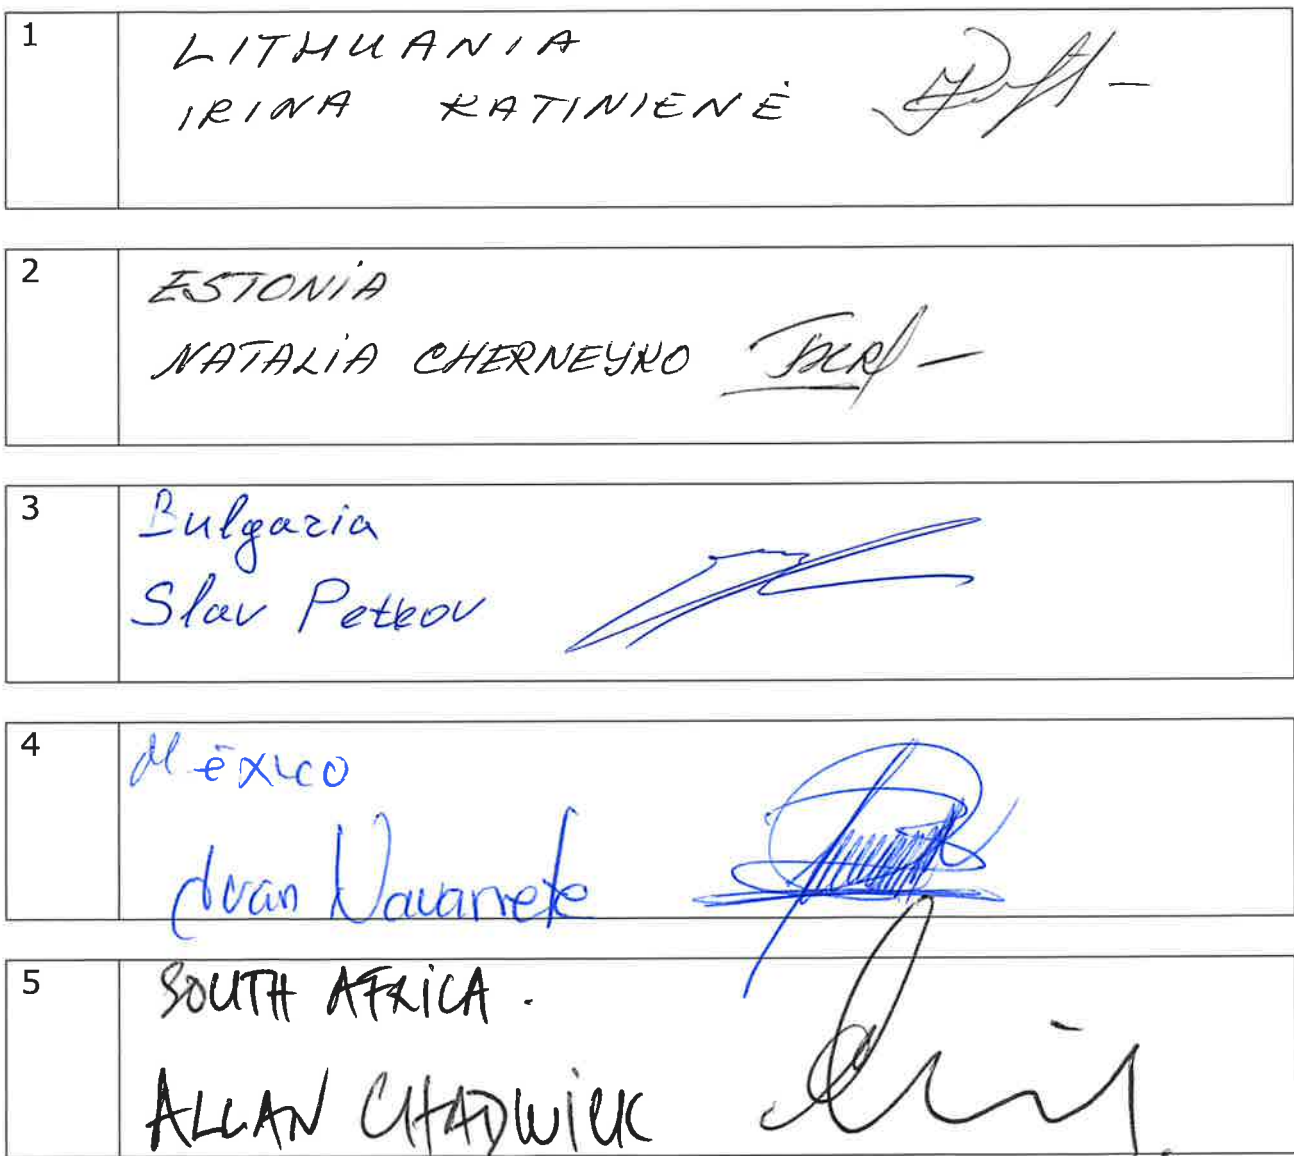 1
LITHUANIA
IRINA KATINIENĖ
2
ESTONIA
NATALIA CHERNEYKO
3
Bulgaria
Slav Petkov
4
México
Juan Navarrete
5
SOUTH AFRICA.
ALLAN CHADWICK